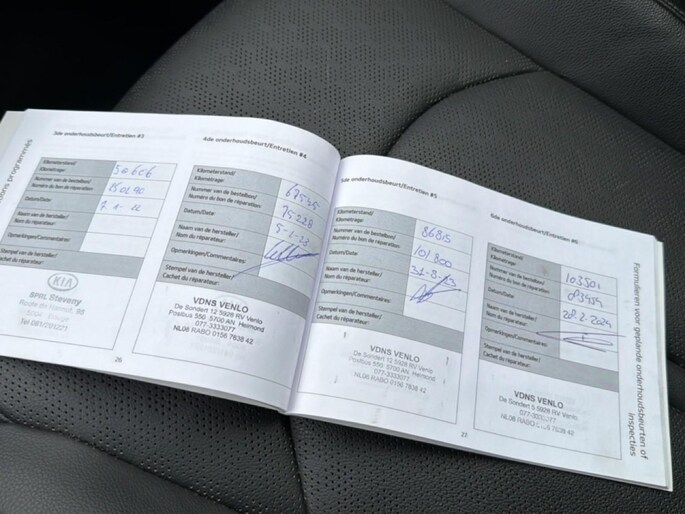 3de onderhoudsbeurt/Entretien #3
Kilometerstand/
Kilométrage:
50606
Nummer van de bestelbon/
Numéro du bon de réparation:
Datum/Date:
Naam van de hersteller/
Nom du réparateur:
Opmerkingen/Commentaires:
Stempel van de hersteller/
Cachet du réparateur:
KIA
SPRL Steveny
26
4de onderhoudsbeurt/Entretien #4
Kilometerstand/
Kilométrage:
Nummer van de bestelbon/
Numéro du bon de réparation:
75228
Datum/Date:
5-1-23
Naam van de hersteller/
Nom du réparateur:
Opmerkingen/Commentaires:
Stempel van de hersteller/
Cachet du réparateur:
VDNS VENLO
De Sondert 12 5928 RV Venlo
Postbus 550, 5700 AN Helmond
077-3333077
NL06 RABO 0156 7638 42
5de onderhoudsbeurt/Entretien #5
Kilometerstand/
Kilométrage:
86815
Nummer van de bestelbon/
Numéro du bon de réparation:
101800
Datum/Date:
Naam van de hersteller/
Nom du réparateur:
Opmerkingen/Commentaires:
Stempel van de hersteller/
Cachet du réparateur:
VDNS VENLO
De Sondert 12 5928 RV Venlo
Postbus 550, 5700 AN Helmond
077-3333077
NL06 RABO 0156 7638 42
27
6de onderhoudsbeurt/Entretien #6
Kilometerstand/
Kilométrage:
103501
Nummer van de bestelbon/
Numéro du bon de réparation:
Datum/Date:
28-2-2024
Naam van de hersteller/
Nom du réparateur:
Opmerkingen/Commentaires:
Stempel van de hersteller/
Cachet du réparateur:
VDNS VENLO
5928 RV Venlo
NL06 RABO 0156 7638 42
Formulieren voor geplande onderhoudsbeurten of
inspecties